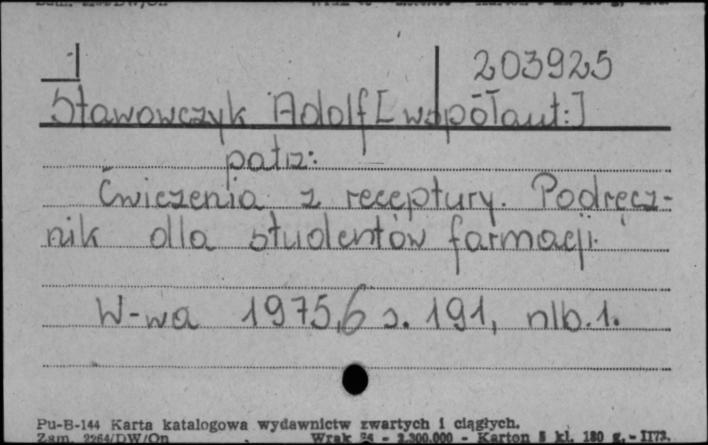 1
203925
Stawowczyk Adolf [współaut:]
patrz:
Ćwiczenia z receptury. Podręcz-
nik dla studentów farmacji.
W-wa 1975,6 s. 191, nlb. 1.
Pu-B-144 Karta katalogowa wydawnictw zwartych i ciągłych.
Zam. 2264/DW/On Wrak - 2.300.000 - Karton kl. 180 g. - II73.